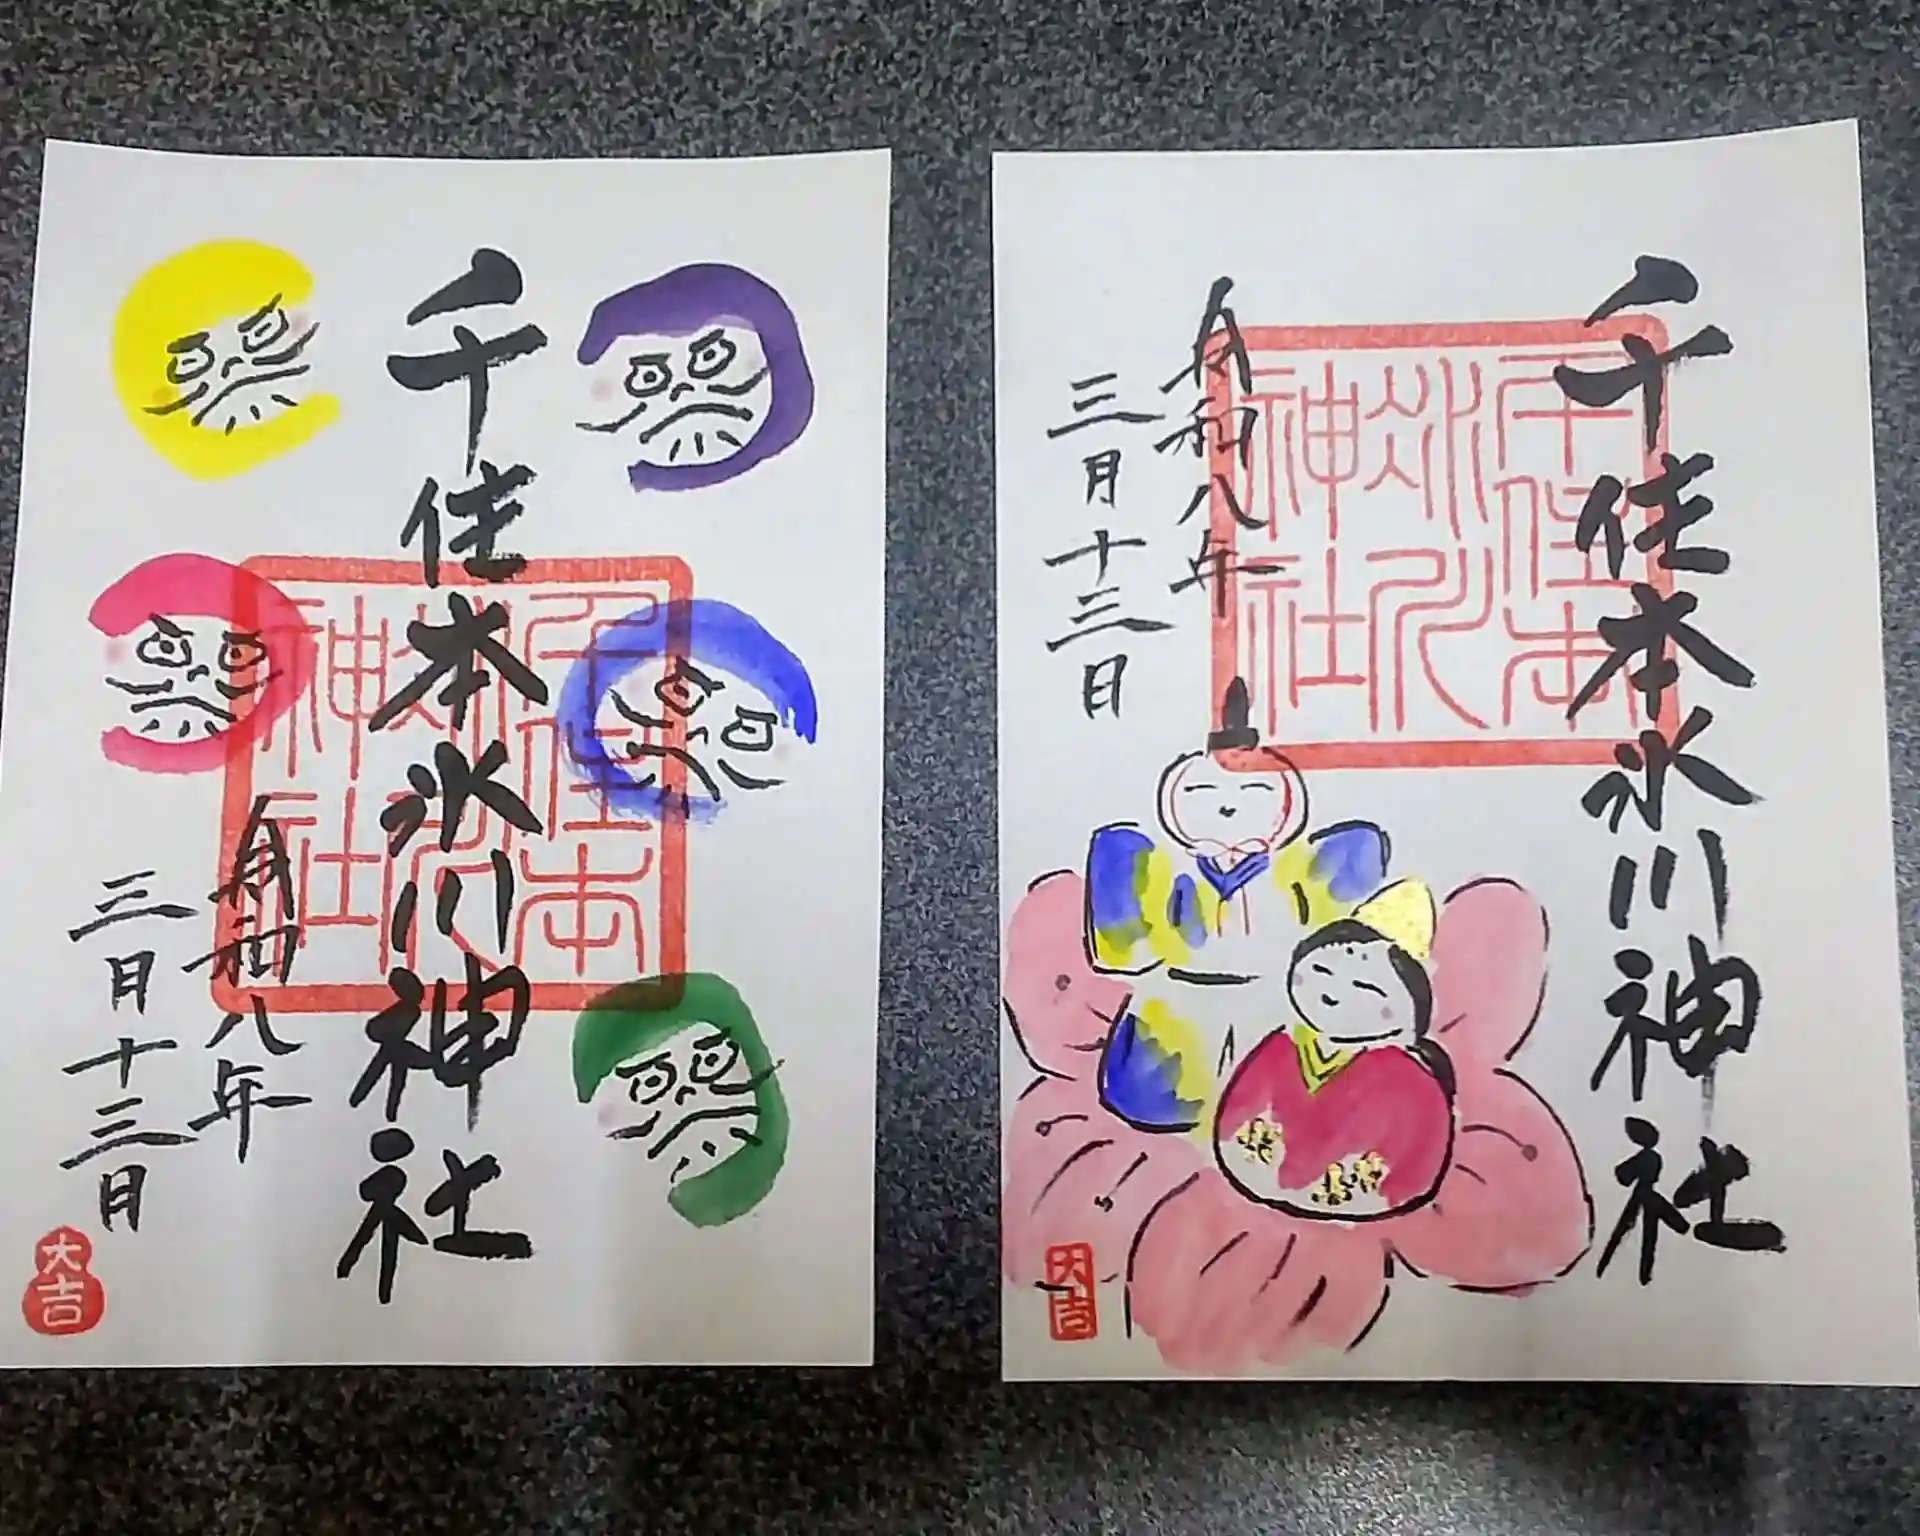 千住本氷川神社
令和八年
三月十三日
大吉
千住本氷川神社
千住本氷川神社
令和八年
三月十三日
大吉
千住本氷川神社